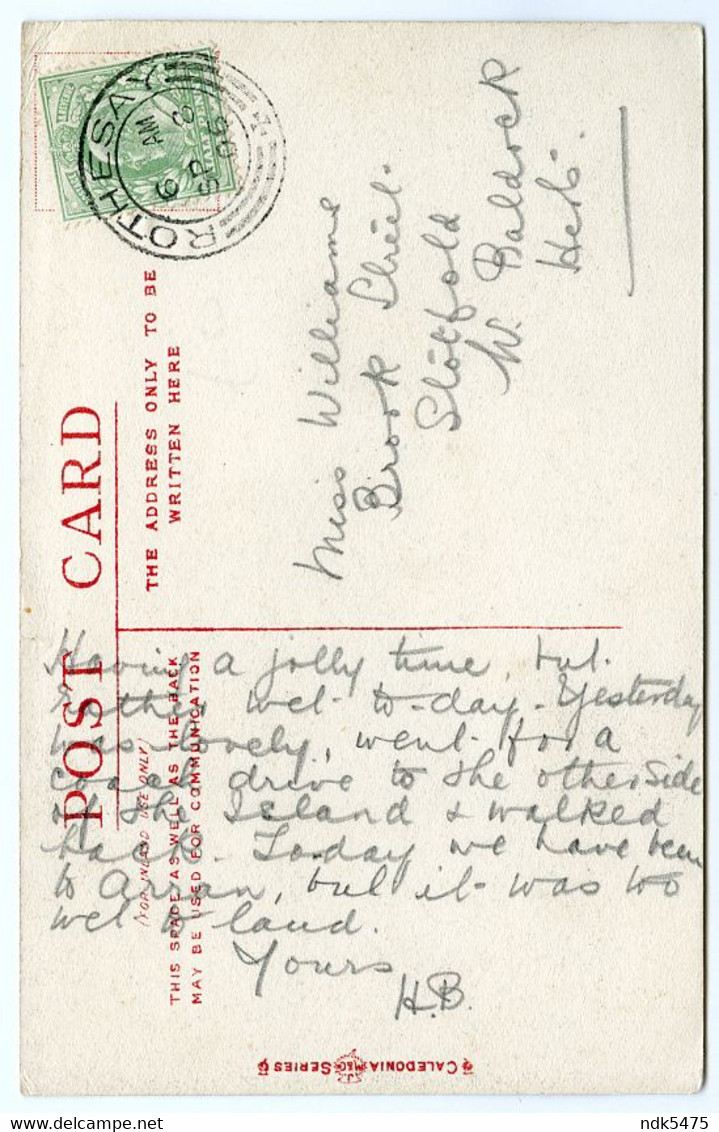 ROTHESAY
6 AM
SP 8
06
POST CARD
THE ADDRESS ONLY TO BE
WRITTEN HERE
(FOR INLAND USE ONLY)
THIS SPACE AS WELL AS THE BACK
MAY BE USED FOR COMMUNICATION
Miss Williams
Brook Street.
Stotfold
W. Baldock
Herts.
Having a jolly time, but
rather wet to-day. Yesterday
was lovely, went for a
coach drive to the other side
of the Island & walked
back. To-day we have been
to Arran, but it was too
wet to land.
Yours
H.B.
CALEDONIA SERIES
ndk5475